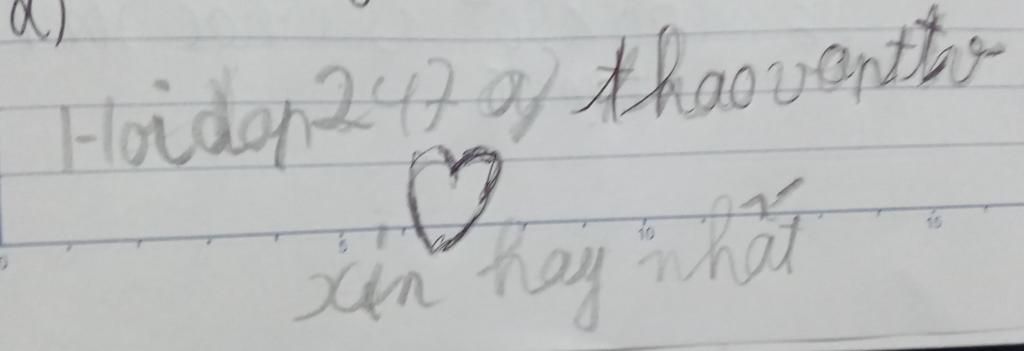 a)
Hoidap247 @ thaovantt
xin hay nhất
0 5 10 15